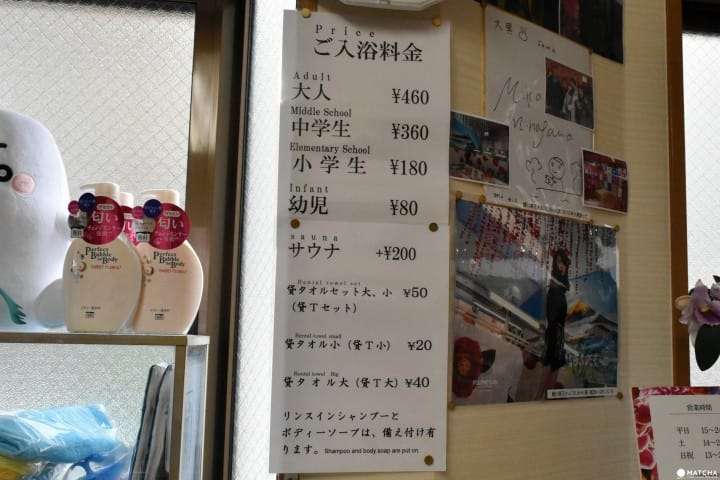 Price
ご入浴料金
Adult
大人 ¥460
Middle School
中学生 ¥360
Elementary School
小学生 ¥180
Infant
幼児 ¥80
sauna
サウナ +¥200
Rental towel set
貸タオルセット大、小 ¥50
(貸Tセット)
Rental towel small
貸タオル小(貸T小) ¥20
Rental towel Big
貸タオル大(貸T大) ¥40
リンスインシャンプーと
ボディーソープは、備え付け有
ります。 Shampoo and body soap are put on.
匂い
Perfect
Bubble
for Body
匂い
Perfect
Bubble
for Body
営業時間
平日 15~2
土 14~2
日祝 13~
MATCHA